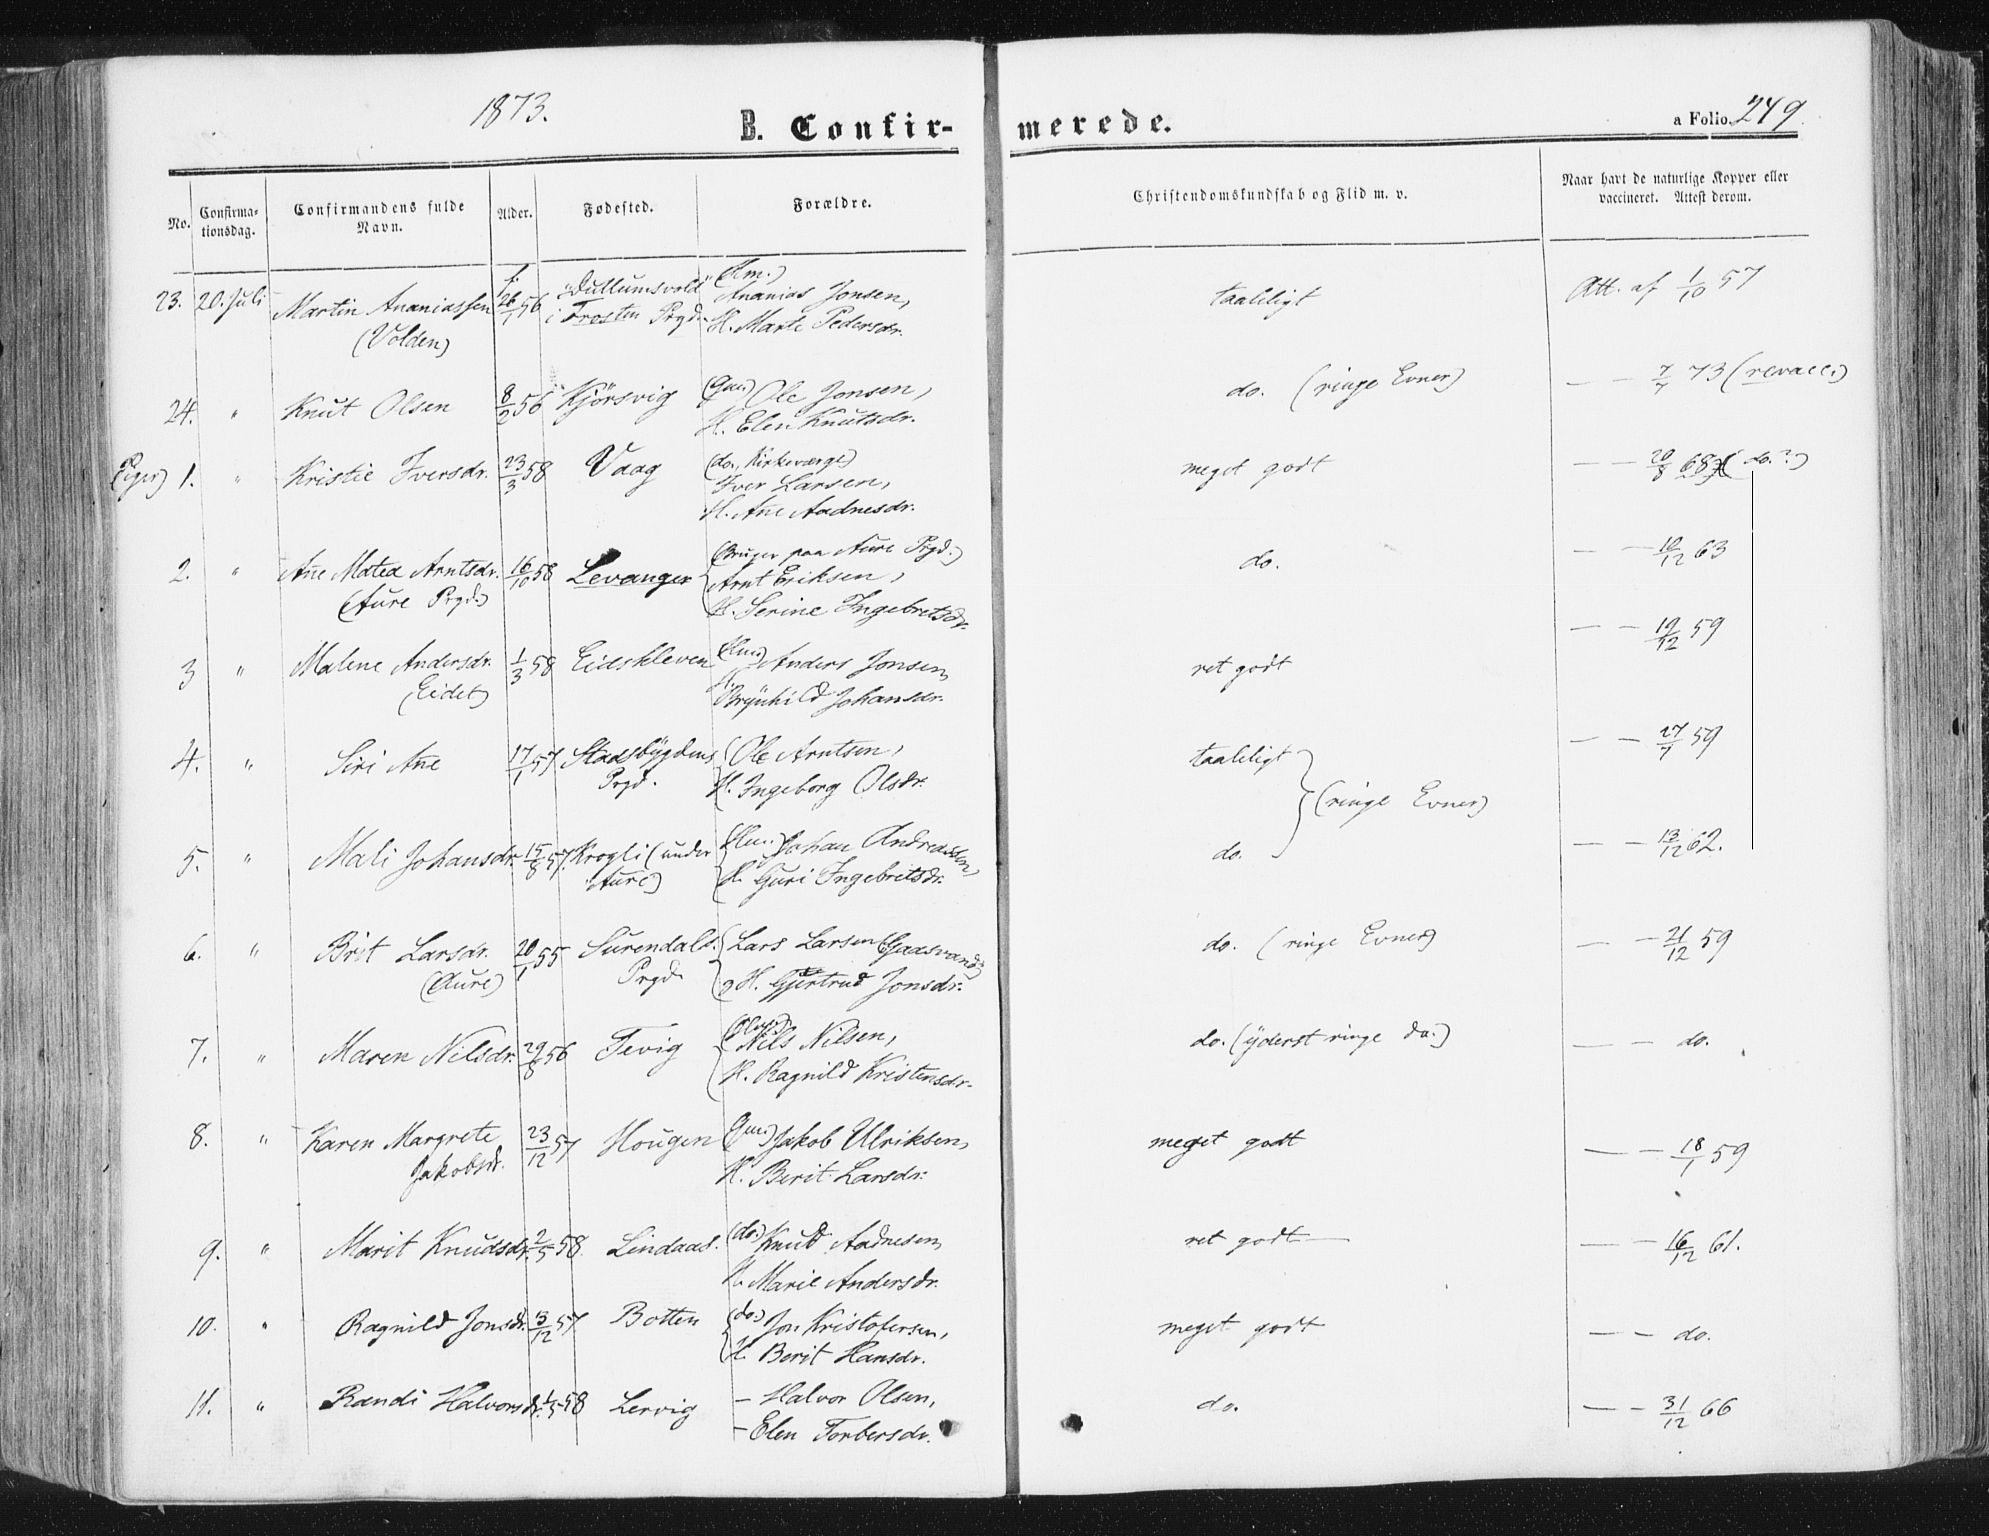 1873.
B. Confir-
merede.
a Folio. 249
No.
Confirma-
tionsdag.
Confirmandens fulde
Navn.
Alder.
Fødested.
Forældre.
Christendomskundskab og Flid m. v.
Naar havt de naturlige Kopper eller
vaccineret. Attest derom.
23. 20. Juli Martin Ananiassen 26/1 56 "Dullumsvold" (Hm.) Ananias Jonsen, taaleligt Att. af 1/10 57
(Volden) i Frosten Prgd. H. Marte Pedersdr.
24. " Knut Olsen 8/2 56 Kjörsvig (Gm.) Ole Jonsen, do. (ringe Evner) — — 7/7 73 (revacc.)
H. Elen Knutsdr.
Piger) 1. " Kristie Iversdr. 23/3 58 Vaag (do., Kirkeværge) meget godt — — 20/8 68 (do.?)
Iver Larsen,
H. Ane Aadnesdr.
2. " Ane Matea Arntsdr. 16/10 58 Levanger (Bruger paa Aure Prgd.) do. — — 10/12 63
(Aure Prgd.) Arnt Eriksen,
H. Serine Ingebretsdr.
3 " Malene Andersdr. 1/3 58 Eidskleven (Hm.) Anders Jonsen, ret godt — — 19/12 59
(Eidet) H. Brynhild Johansdr.
4. " Siri Ane 17/1 57 Stadsbygdens Ole Arntsen, taaleligt — — 27/7 59
Prgd. H. Ingeborg Olsdr.
(ringe Evner)
5. " Mali Johansdr. 15/8 57. Krogli (under (Hm.) Johan Andreassen, do. — — 13/12 62.
Aure) H. Guri Ingebretsdr.
6. " Brit Larsdr. 20/1 55 Surendals Lars Larsen (Gaasvand) do. (ringe Evner) — — 21/12 59
(Aure) Prgd. H. Gjertrud Jonsdr.
7. " Maren Nilsdr. 29/8 56 Tevig (Hm.) Nils Nilsen, do. (yderst ringe do.) — — do.
H. Ragnild Kristensdr.
8. " Karen Margrete 23/12 57 Hougen (Gm.) Jakob Ulriksen, meget godt — — 18/1 59
Jakobsdr. H. Berit Larsdr.
9. " Marit Knudsdr. 2/5 58. Lindaas. (do.) Knud Aadnesen, ret godt — — 16/12 61.
H. Marie Andersdr.
10. " Ragnild Jonsdr. 3/12 57 Botten (do.) Jon Kristofersen, meget godt — — do.
H. Berit Hansdr.
11. " Randi Halvorsdr. 1/5 58 Lervig – Halvor Olsen, do. — — 31/12 66
– Elen Torbersdr.